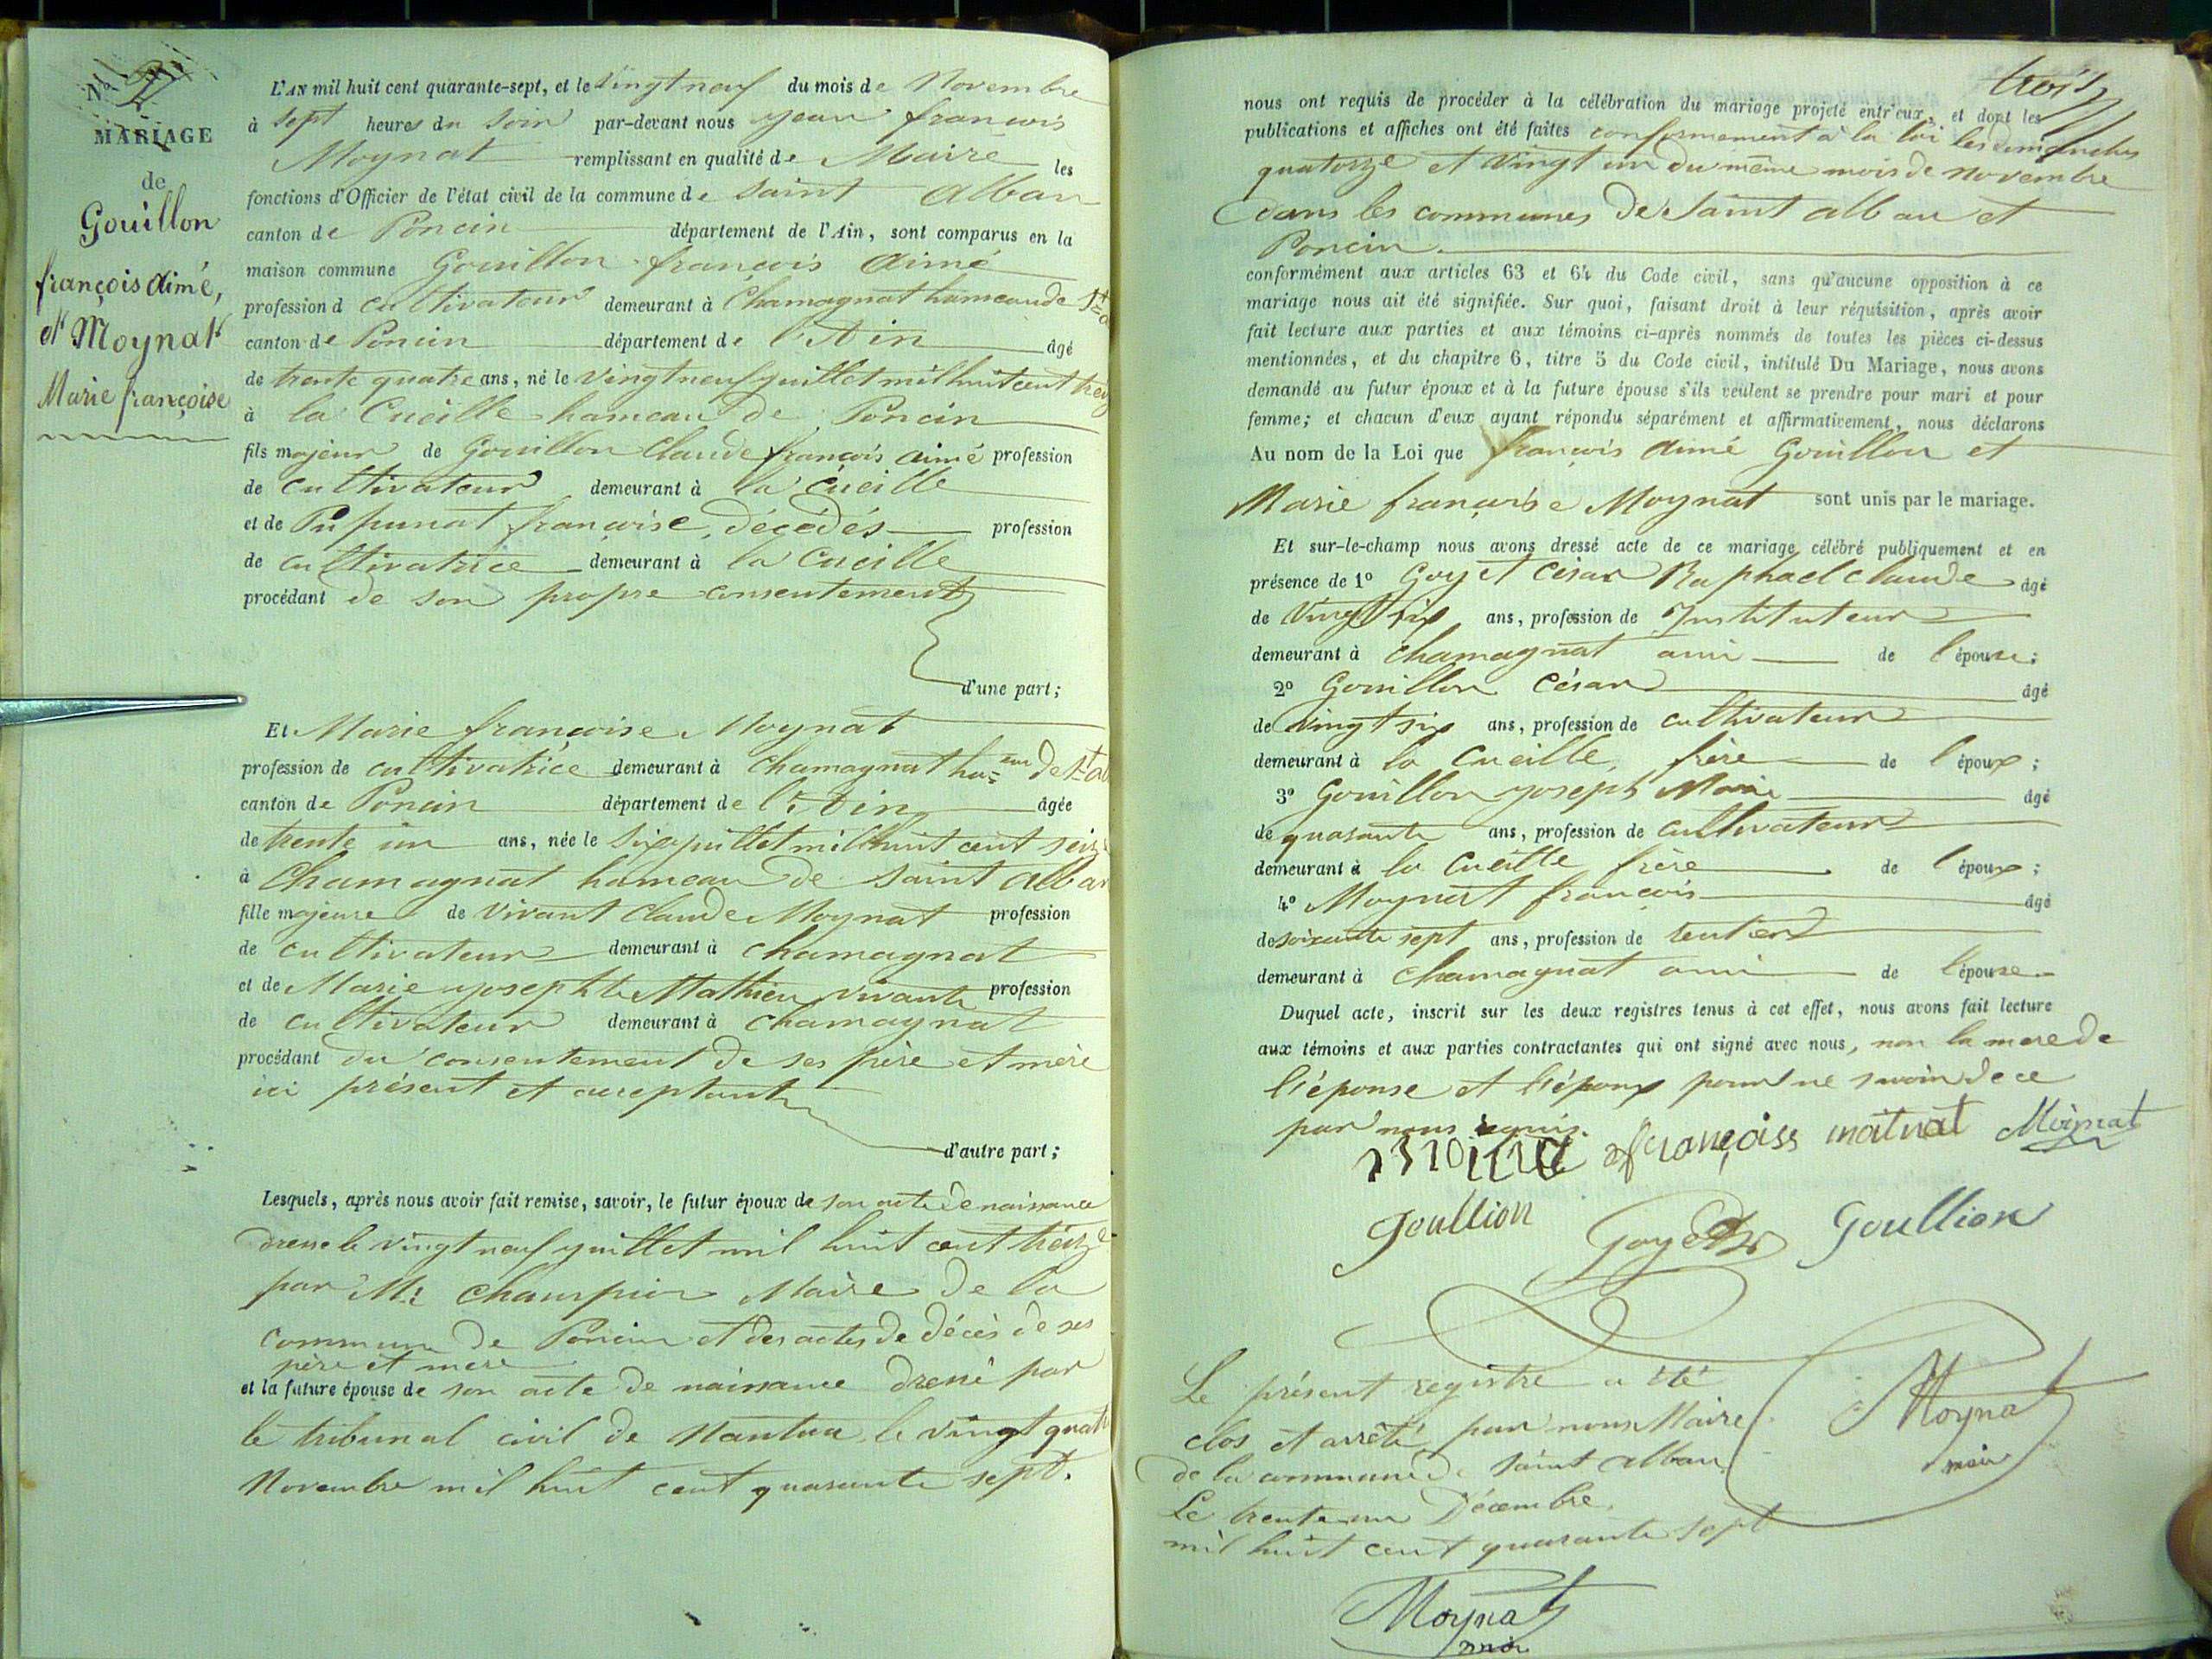 N° 2
MARIAGE
de
Gouillon
françois Aimé,
et Moynat
Marie françoise
L'AN mil huit cent quarante-sept, et le vingt neuf du mois de Novembre
à sept heures du soir par-devant nous Jean françois
Moynat remplissant en qualité de Maire les
fonctions d'Officier de l'état civil de la commune de saint Alban
canton de Poncin département de l'Ain, sont comparus en la
maison commune Gouillon françois Aimé
profession d cultivateur demeurant à Chamagnat hameau de St a
canton de Poncin département de l'Ain âgé
de trente quatre ans, né le vingt neuf juillet mil huit cent treiz
à la Cueille hameau de Poncin
fils majeur de Gouillon Claude françois aimé profession
de cultivateur demeurant à la cueille
et de Pupunat françoise, décédés profession
de cultivatrice demeurant à la Cueille
procédant de son propre consentement
d'une part;
Et Marie françoise Moynat
profession de cultivatrice demeurant à Chamagnat ha=eau de St al
canton de Poncin département de l'Ain âgée
de trente un ans, née le six juillet mil huit cent seize
à Chamagnat hameau de saint alban
fille majeure de vivant Claude Moynat profession
de cultivateur demeurant à chamagnat
et de Marie josephte Mathieu vivante profession
de cultivateur demeurant à chamagnat
procédant du consentement de ses père et mère
ici présent et acceptant
d'autre part;
Lesquels, après nous avoir fait remise, savoir, le futur époux de son acte de naissance
dressé le vingt neuf juillet mil huit cent treize
par Mr Champion Maire de la
commune de Poncin et des actes de décès de ses
père et mere
et la future épouse de son acte de naissance dressé par
le tribunal civil de Nantua le vingt quatr
Novembre mil huit cent quarante sept.
trois
nous ont requis de procéder à la célébration du mariage projeté entr'eux, et dont les
publications et affiches ont été faites conformement à la loi les dimanches
quatorze et vingt un du même mois de novembre
dans les communes de Saint alban et
Poncin.
conformément aux articles 63 et 64 du Code civil, sans qu'aucune opposition à ce
mariage nous ait été signifiée. Sur quoi, faisant droit à leur réquisition, après avoir
fait lecture aux parties et aux témoins ci-après nommés de toutes les pièces ci-dessus
mentionnées, et du chapitre 6, titre 5 du Code civil, intitulé Du Mariage, nous avons
demandé au futur époux et à la future épouse s'ils veulent se prendre pour mari et pour
femme; et chacun d'eux ayant répondu séparément et affirmativement, nous déclarons
Au nom de la Loi que françois Aimé Gouillon et
Marie françoise Moynat sont unis par le mariage.
Et sur-le-champ nous avons dressé acte de ce mariage célébré publiquement et en
présence de 1° Goyet César Raphael claude âgé
de vingt six ans, profession de Instituteur
demeurant à chamagnat ami de l'épouse;
2° Gouillon César âgé
de vingt six ans, profession de cultivateur
demeurant à la Cueille, frère de l'époux;
3° Gouillon joseph Marie âgé
de quarante ans, profession de cultivateur
demeurant à la Cueille frère de l'époux;
4° Moynat françois âgé
de soixante sept ans, profession de rentier
demeurant à Chamagnat ami de l'épouse
Duquel acte, inscrit sur les deux registres tenus à cet effet, nous avons fait lecture
aux témoins et aux parties contractantes qui ont signé avec nous, non la mere de
l'épouse et l'époux pour ne savoir de ce
par nous requis.
françoise moinat Moynat
Goullion Goyet Goullion
Le présent registre a été
clos et arrêté par nous Maire
de la commune de saint alban
Le trente un Décembre
mil huit cent quarante sept
Moynat
maire
Moynat
maire